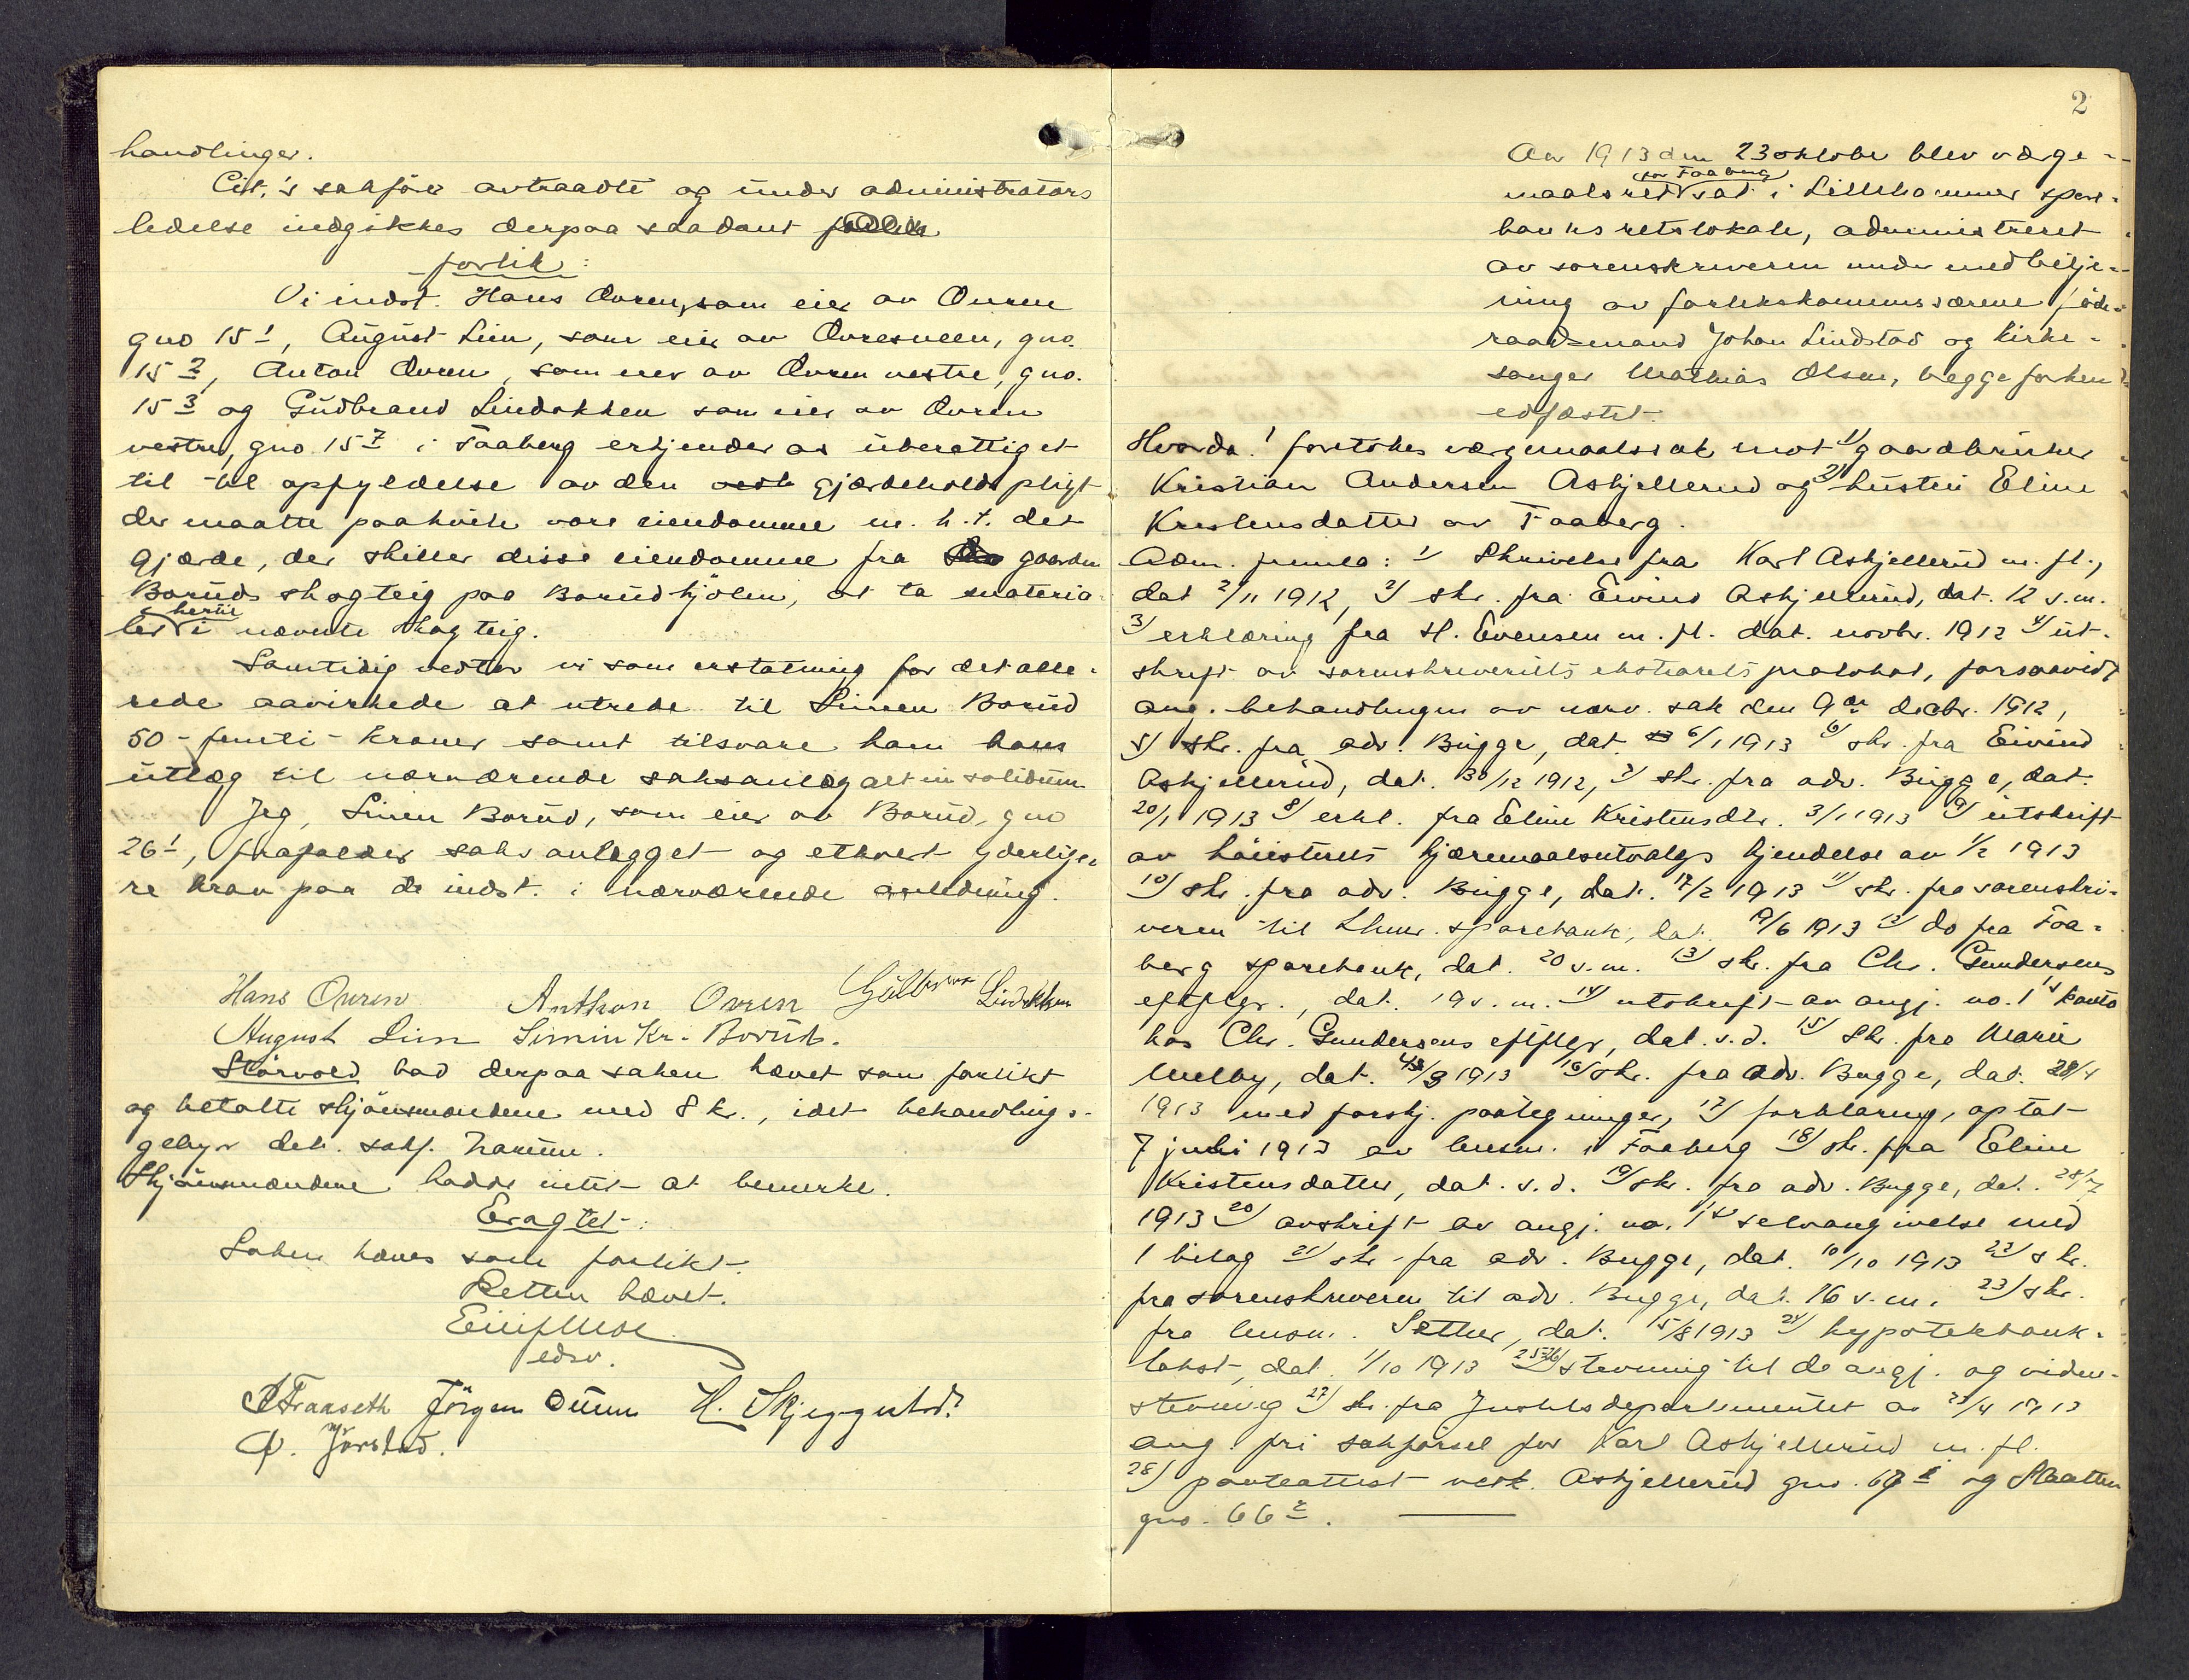 handlinger.
Cit.'s sakförer avtraadte og under administrators
ledelse indgikkes derpaa saadant
forlik:
Vi indst. Hans Ovren, som eier av Ovren
gno 15¹, August Lien, som eier av Ovresveen, gno.
15², Anton Ovren, som eier av Ovren vestre, gno.
15³ og Gudbrand Lindokken som eier av Ovren
vestre, gno. 15⁷ i Faaberg erkjender os uberettiget
til til opfyldelse av den gjærdeholdspligt
der maatte paahvile vore eiendomme m. h. t. det
gjærde, der skiller disse eiendomme fra gaarden
Boruds skogteig paa Borudkjölen, at ta materia-
ler hertil i nævnte skogteig.
Samtidig vedtar vi som erstatning for det alle-
rede aavirkede at utrede til Simen Borud
50 - femti - kroner samt tilsvare ham hans
utlæg til nærværende saksanlæg alt in solidum.
Jeg, Simen Borud, som eier av Borud, gno
26¹, frafalder saksanlægget og ethvert yderlige-
re krav paa de indst. i nærværende anledning.
Hans Ovren Anthon Ovren Gulbran Lindokken
August Lien Simin Kr. Borud.
Störvold bad derpaa saken hævet som forlikt
og betalte skjönsmændene med 8 kr., idet behandlings-
gebyr
Skjönsmændene hadde intet at bemerke.
Eragtet:
Saken hæves som forlikt.
Retten hævet.
edsv.
Jörgen H. Skjeggestad
Jörstad.
2
Aar 1913 den 23 oktober blev værge-
maalsret for Faaberg sat i Lillehammer spare-
banks retslokale, administreret
av sorenskriveren under medbetje-
ning av forlikskommissærene föde-
raadsmand Johan Lindstad og kirke-
sanger Mathias Olsen, begge forhen
edfæstet.
Hvorda! foretokes værgemaalssak mot 1/ gaardbruker
Kristian Andersen Askjellerud og 2/ hustru Eline
Kristensdatter av Faaberg.
Adm. fremla: 1/ Skrivelse fra Karl Askjellerud m. fl.,
dat 2/11 1912, 2/ skr. fra Eivind Askjellerud, dat. 12 s.m.
3/ erklæring fra H. Evensen m. fl. dat. novbr. 1912 4/ ut-
skrift av sorenskriveriets ekstraretsprotokol, forsaavidt
ang. behandlingen av nærv. sak den 9de decbr. 1912,
5/ skr. fra adv. Bugge, dat. 6/1 1913 6/ skr. fra Eivind
Askjellerud, dat. 30/12 1912, 7/ skr. fra adv. Bugge, dat.
20/1 1913 8/ erkl. fra Eline Kristensdtr. 3/1 1913 9/ utskrift
av höiesterets kjæremaalsutvalgs kjendelse av 1/2 1913
10/ skr. fra adv. Bugge, dat. 17/2 1913 11/ skr. fra sorenskri-
veren til Lhmr. sparebank, dat. 19/6 1913 12/ do fra Faa-
berg sparebank, dat. 20 s.m. 13/ skr. fra Chr. Gundersens
eftflgr., dat. 19 s. m. 14/ utskrift av angj. no. 1's konto
hos Chr. Gundersens eftflgr, dat. s.d. 15/ Skr. fra Marie
Melby, dat. 1913 16/ skr. fra adv. Bugge, dat. 28/4
1913 med forskj. paategninger, 17/ forklaring, optat
7 juli 1913 av lensm. i Faaberg 18/ skr. fra Eline
Kristensdatter, dat. s.d. 19/ skr. fra adv. Bugge, dat. 28/7
1913 20/ avskrift av angj. no. 1's selvangivelse med
1 bilag 21/ skr. fra adv. Bugge, dat. 10/10 1913 22/ skr.
fra sorenskriveren til adv. Bugge, dat. 16 s.m. 23/ skr.
fra lensm. Sether, dat. 15/8 1913 24/ hypotekbank-
takst, dat. 1/10 1913 25-26/ stevning til de angj. og vidne-
stevning 27/ skr. fra Justitsdepartementet av 23/4 1913
ang. fri sakförsel for Karl Askjellerud m. fl.
28/ panteattest vedk. Askjellerud gno. og Slaatten
gno. 66².